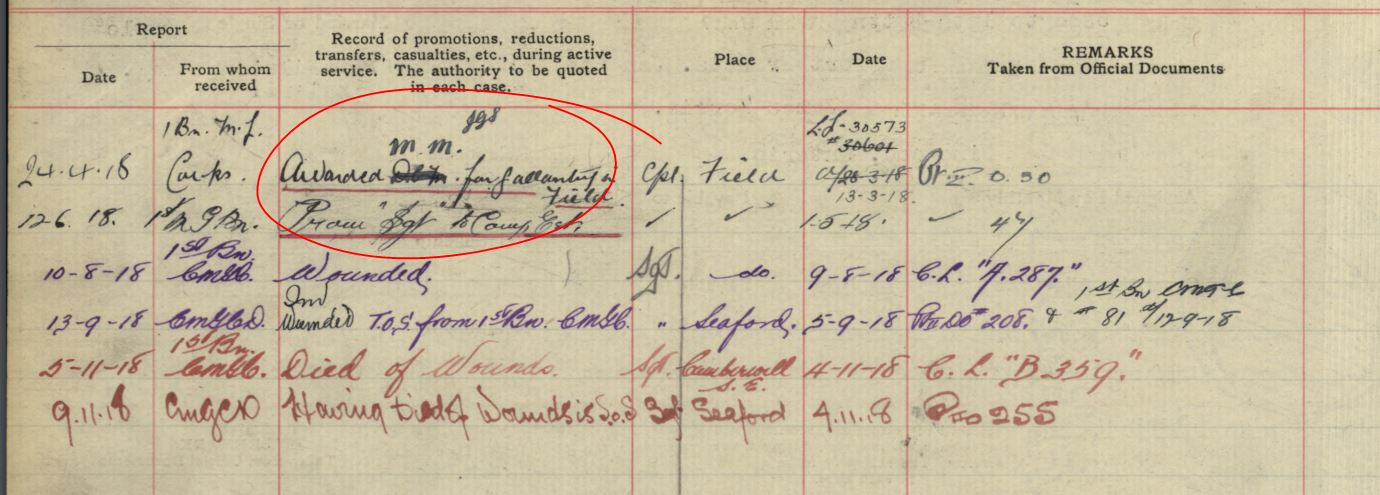 Report
Date
From whom
received
Record of promotions, reductions,
transfers, casualties, etc., during active
service. The authority to be quoted
in each case.
Place
Date
REMARKS
Taken from Official Documents
1 Bn. M.G.
24.4.18 Corks. Awarded D.C.M. for gallantry in Cpl. Field
M.M.
Field.
L.G. 30573
# 30601
d/28-3-18
13-3-18.
Pt II. O. 30
12 6. 18. 1st M G Bn. "Prom" Sgt" to Comp. Est. ✓ ✓ 1-5-18. ✓ 47
1st Bn.
10-8-18 CMGC. Wounded. Sgt. do. 9-8-18 C.L. "A.287."
Inv
13-9-18 CMGCD. Wounded T.O.S. from 1st Bn. CMGC. " Seaford. 5-9-18 Pt II DO # 208. & # 81 d/12-9-18
1st Bn CMGC
1st Bn.
5-11-18 CMGC. Died of Wounds. Sgt. Camberwell 4-11-18 C.L. "B359."
S.E.
9.11.18 CMGCD Having Died of Wounds is S.O.S Sgt Seaford 4.11.18 Pt II O 255